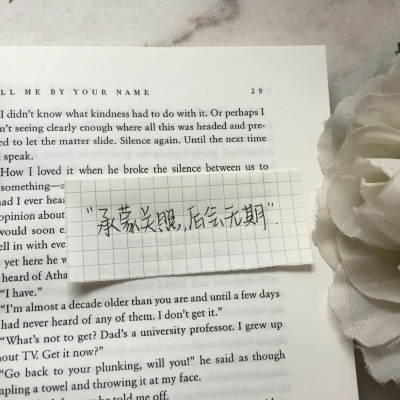 LL ME BY YOUR NAME 29
I didn't know what kindness had to do with it. Or perhaps I
n't seeing clearly enough where all this was headed and pre-
ed to let the matter slide. Silence again. Until the next time
speak.
How I loved it when he broke the silence between us to
something—a
had I ever hear
opinion about
would soon e
ell in with eve
yet here he w
heard of Atha
"承蒙关照,后会无期"
"I have."
"I'm almost a decade older than you are and until a few days
had never heard of any of them. I don't get it."
"What's not to get? Dad's a university professor. I grew up
hout TV. Get it now?"
"Go back to your plunking, will you!" he said as though
mpling a towel and throwing it at my face.
he told me off.